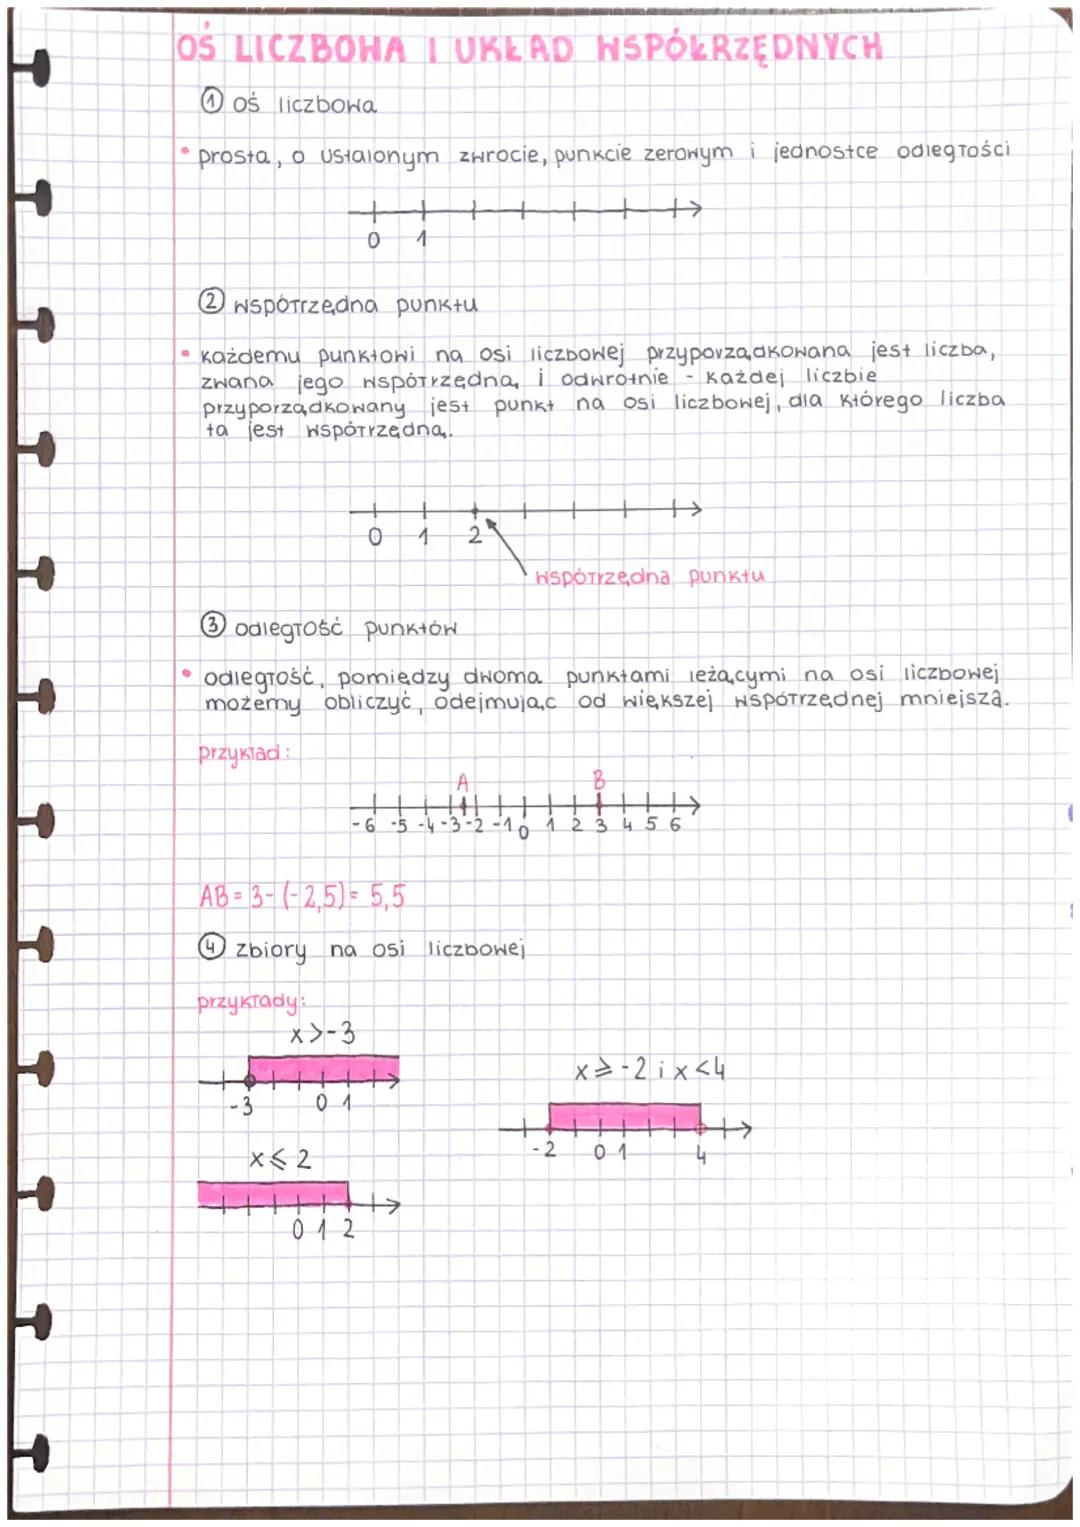 OŚ LICZBOWA I UKŁAD WSPÓŁRZĘDNYCH
① oś liczbowa
• prosta, o ustalonym zwrocie, punkcie zerowym i jednostce odległości
0 1
② współrzędna punktu
• każdemu punktowi na osi liczbowej przyporządkowana jest liczba,
zwana jego współrzędną, i odwrotnie - każdej liczbie
przyporządkowany jest punkt na osi liczbowej, dla którego liczba
ta jest współrzędną.
0 1 2
współrzędna punktu
③ odległość punktów
• odległość, pomiędzy dwoma punktami leżącymi na osi liczbowej
możemy obliczyć, odejmując od większej współrzędnej mniejszą.
przykład:
A B
-6 -5 -4 -3 -2 -1 0 1 2 3 4 5 6
AB = 3 - (-2,5) = 5,5
④ zbiory na osi liczbowej
przykłady:
x > -3
-3 0 1
x ⩾ -2 i x < 4
-2 0 1 4
x ⩽ 2
0 1 2